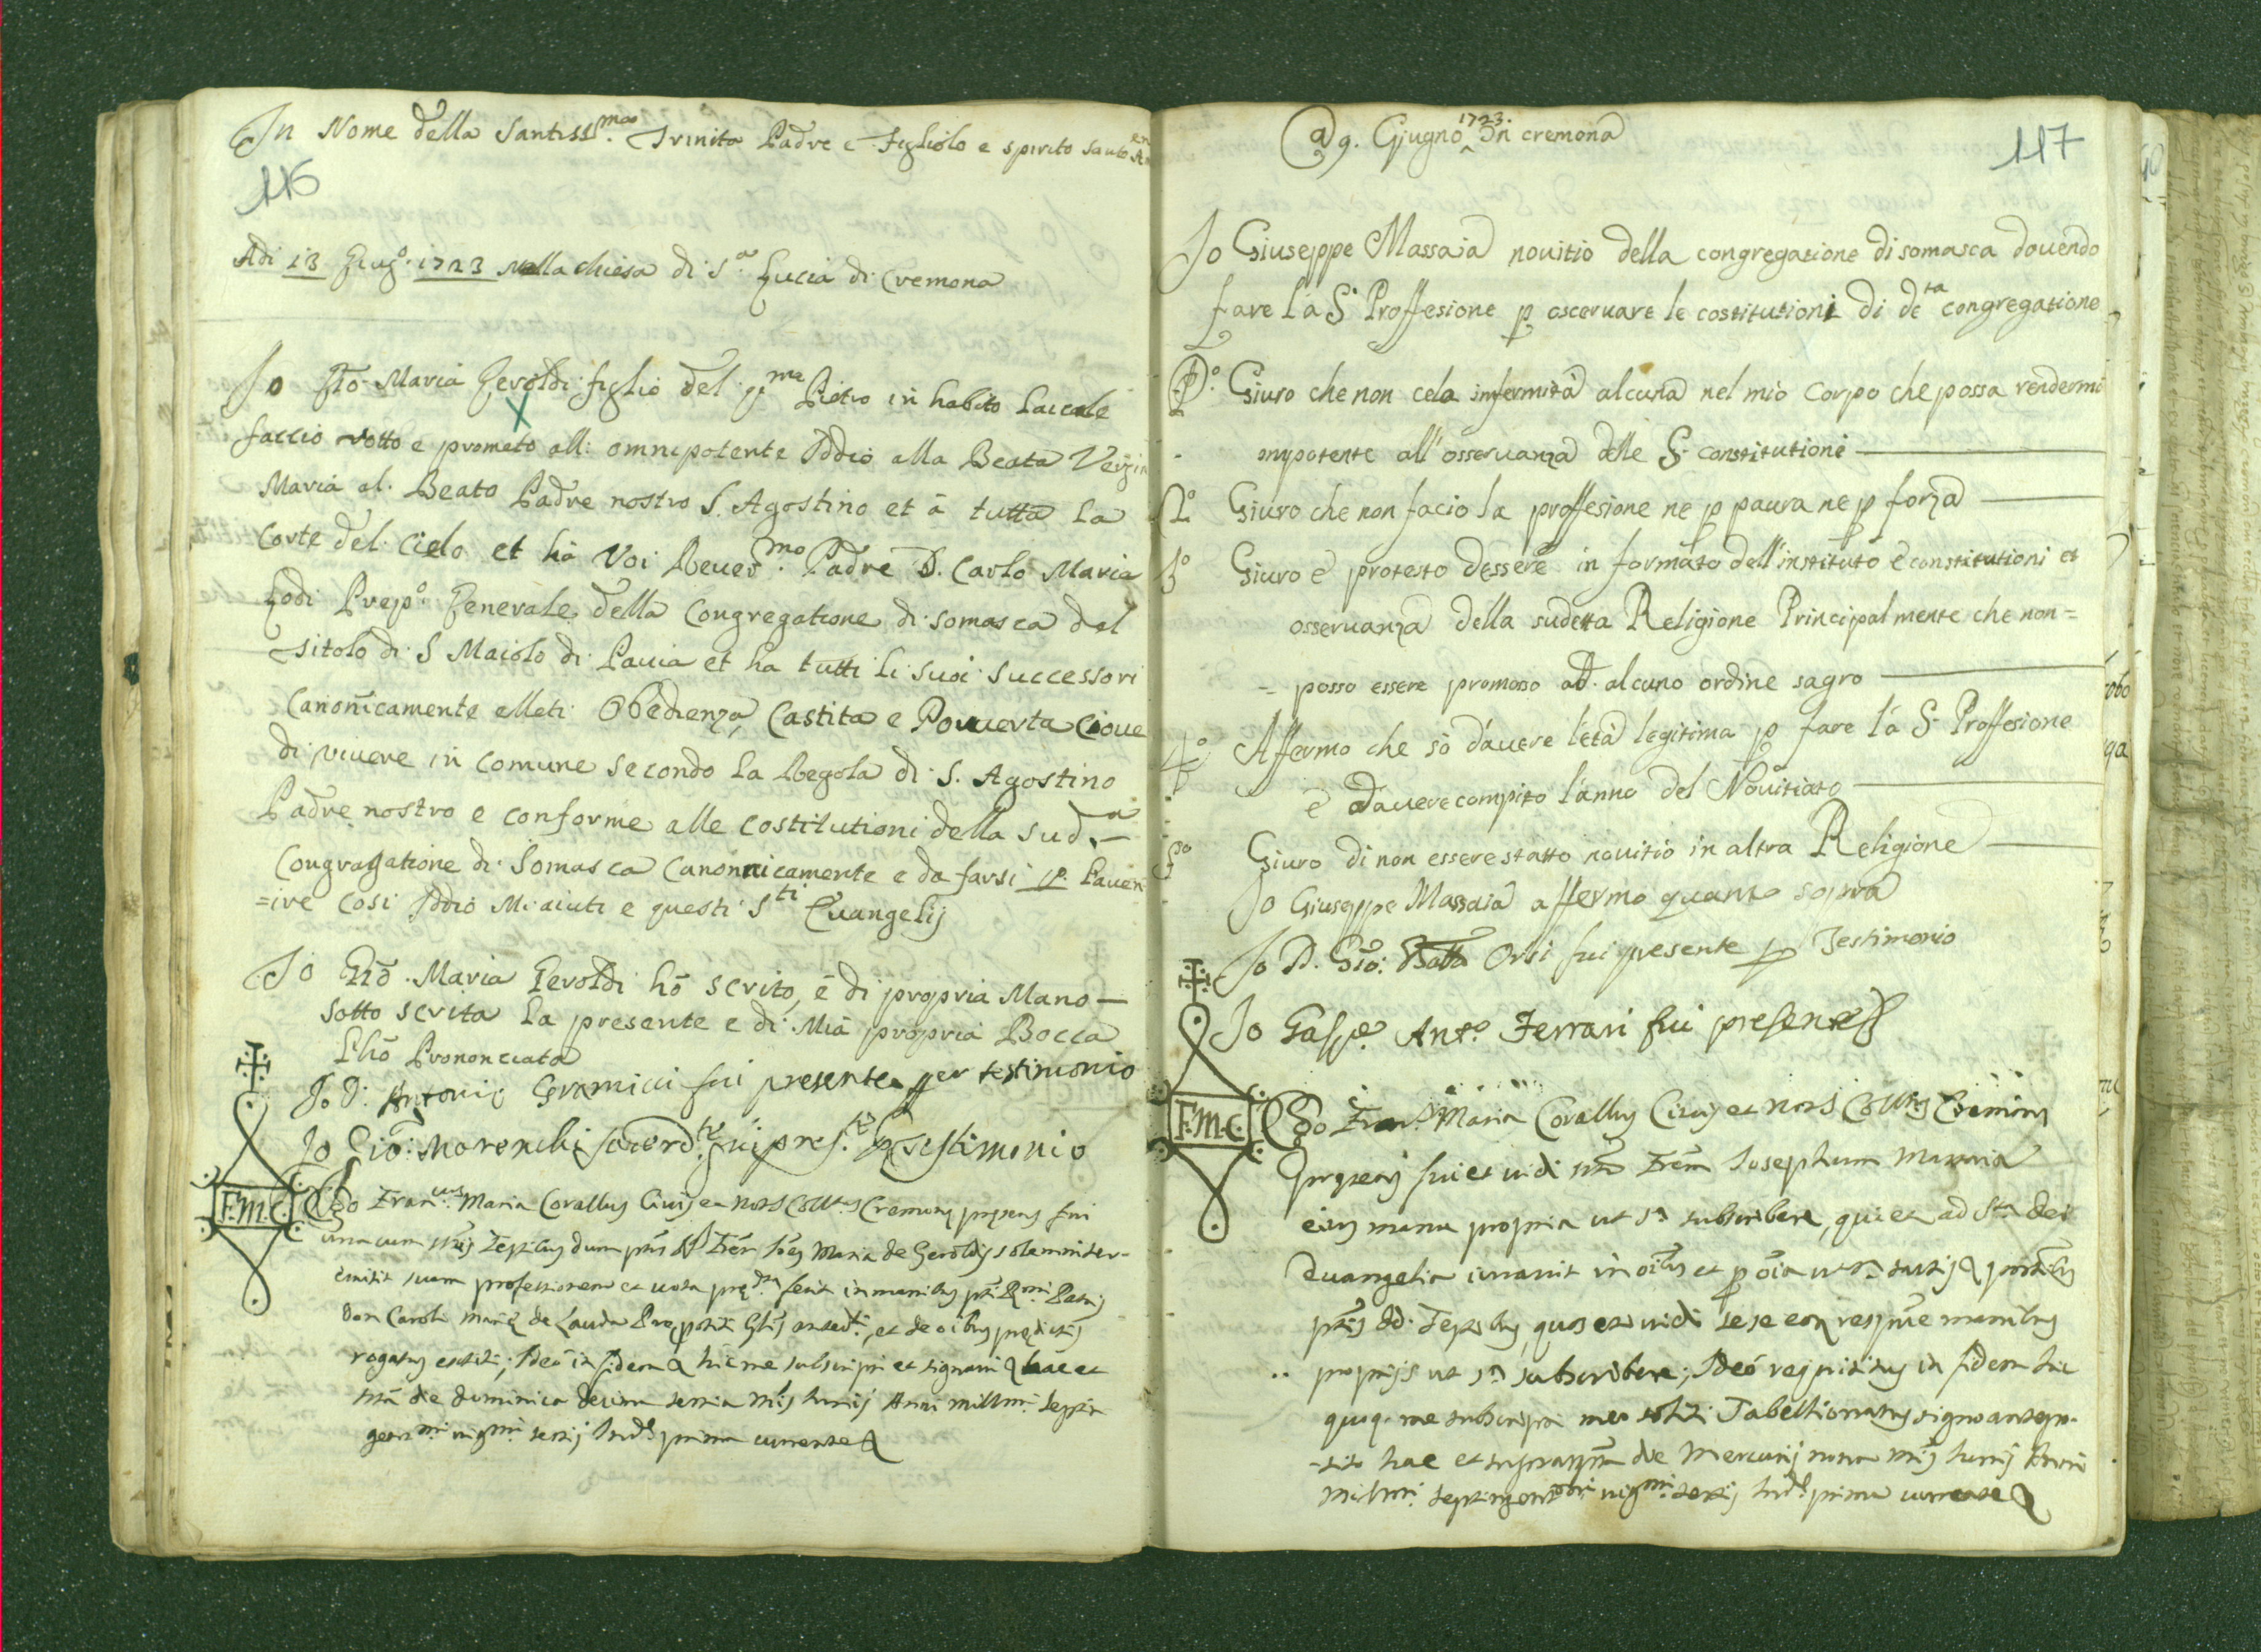 In Nome della Santiss.ma Trinita Padre e Figliolo e Spirito Santo
116
Adi 13 Giug.o 1723 nella chiesa di S.a Lucia di Cremona
Io Gio Maria Geroldi figlio del q.m Pietro in habito Laicale
faccio votto e prometo all: omnipotente Iddio alla Beata Vergin
Maria al Beato Padre nostro S. Agostino et à tutta la
Corte del Cielo et hà Voi Reuer.mo Padre D. Carlo Maria
Lodi Prep.o Generale della Congregatione di somasca del
titolo di S Maiolo di Pauia et ha tutti li suoi successori
Canonicamente elleti Obedienza, Castita e Pouuerta Cioue
di viuere in comune secondo la Regola di S. Agostino
Padre nostro e conforme alle costitutioni della Sud.a
Congragatione di Somasca Canonnicamente e da farsi p. Lauen
=ire Cosi Iddio Mi aiuti e questi S.ti Euangelij
Io Gio. Maria Geroldi hò scrito, è di propria Mano
Sotto scrita la presente e di Mià propria Bocca
Lhò Prononciata
Io D. Antonio fui presente per testimonio
Io Gio: Marenchi sacerd.te fui pres.te p testimonio
F.M.C. Ego Fran.cus Maria Corallus Ciuis et Not.s Coll.s Cremonę pręsens fui
una cum testibus dum Maria de Geroldis solemniter
emisit suam professionem et uota pręd.ta fecit in manibus Patris
Don Caroli Marię de Lauda et de oibus prędictis
rogatus extiti; Ideò in fidem hic me subscripsi et signaui hac et
die dominica decima tertia Junij Anni millmi septin
gen.mi uig.mi tertij Ind.e prima currente
@ 9. Giugno 1723. In cremona
117
Io Giuseppe Massaia nouitio della congregatione di somasca douendo
fare la S. Proffesione p osceruare le costitutioni di de.ta congregatione
P.o Giuro che non cela infermità alcuna nel mio corpo che possa rendermi
ompotente all'osseruanza delle S. constitutioni
2.o Giuro che non facio la proffesione ne p paura ne p forza
3.o Giuro è protesto dessere in formato dell'instituto è constitutioni et
osseruanza della sudetta Religione Principalmente che non=
= posso essere promosso ad alcuno ordine sagro
4.o Affermo che sò d'auere l'età legitima p fare la S. Proffesione
è dauere compito l'anno del Nouitiato
5.o Giuro di non essere statto nouitio in altra Religione
Io Giuseppe Massaia affermo quanto sopra
Io D. Gio: Batta Orsi fui presente p Testimonio
Io Gasp.e Ant.o Ferrari fui presente
F.M.C. Ego Fran.s Maria Corallus Ciuis et Not.s Coll.s Cremonę
pręsens fui et uidi Josephum Massaia
eius manu propria ut s.a subscribere, qui et ad S.ta dei
Euangelia iurauit in oibus et p oia ut s.a
Testibus, quos et uidi sese manibus
proprijs ut s.a subscribere; Ideò requisitus in fidem hic
quoq. me subscripsi meo solito Tabellionatus signo antepo-
-sito hac et die Mercurij nona Junij Anni
millmi. septingentmi uig.mi tertij Ind.e prima currente